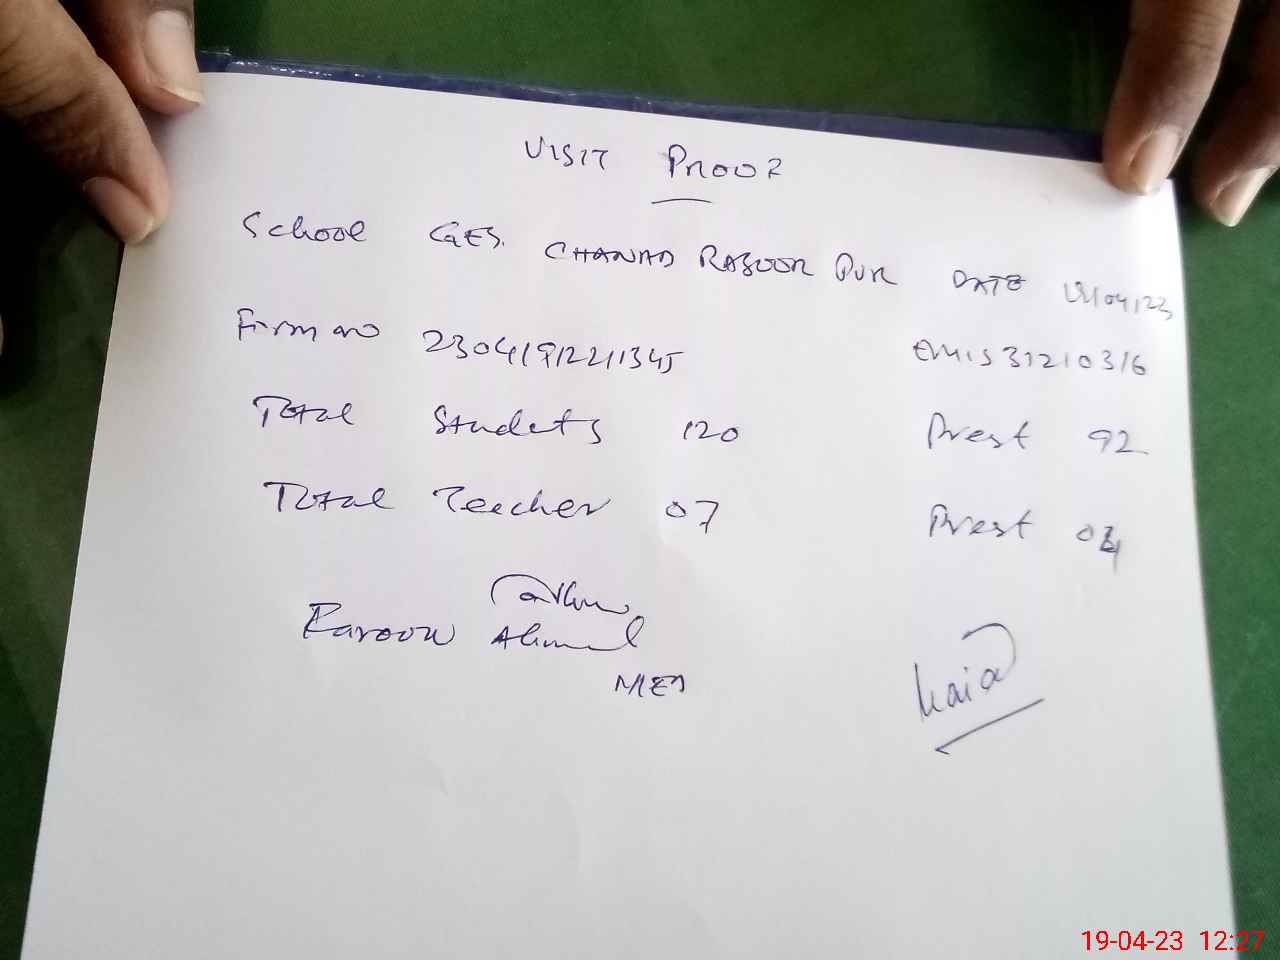 VISIT PROOF
School GES. CHANAD RASOOR PUR DATE 19/04/23
Firm no 2304191221345 EMIS 31210316
Total Students 120 Prest 92
Total Teecher 07 Prest 04
Ahmad
19-04-23 12:27